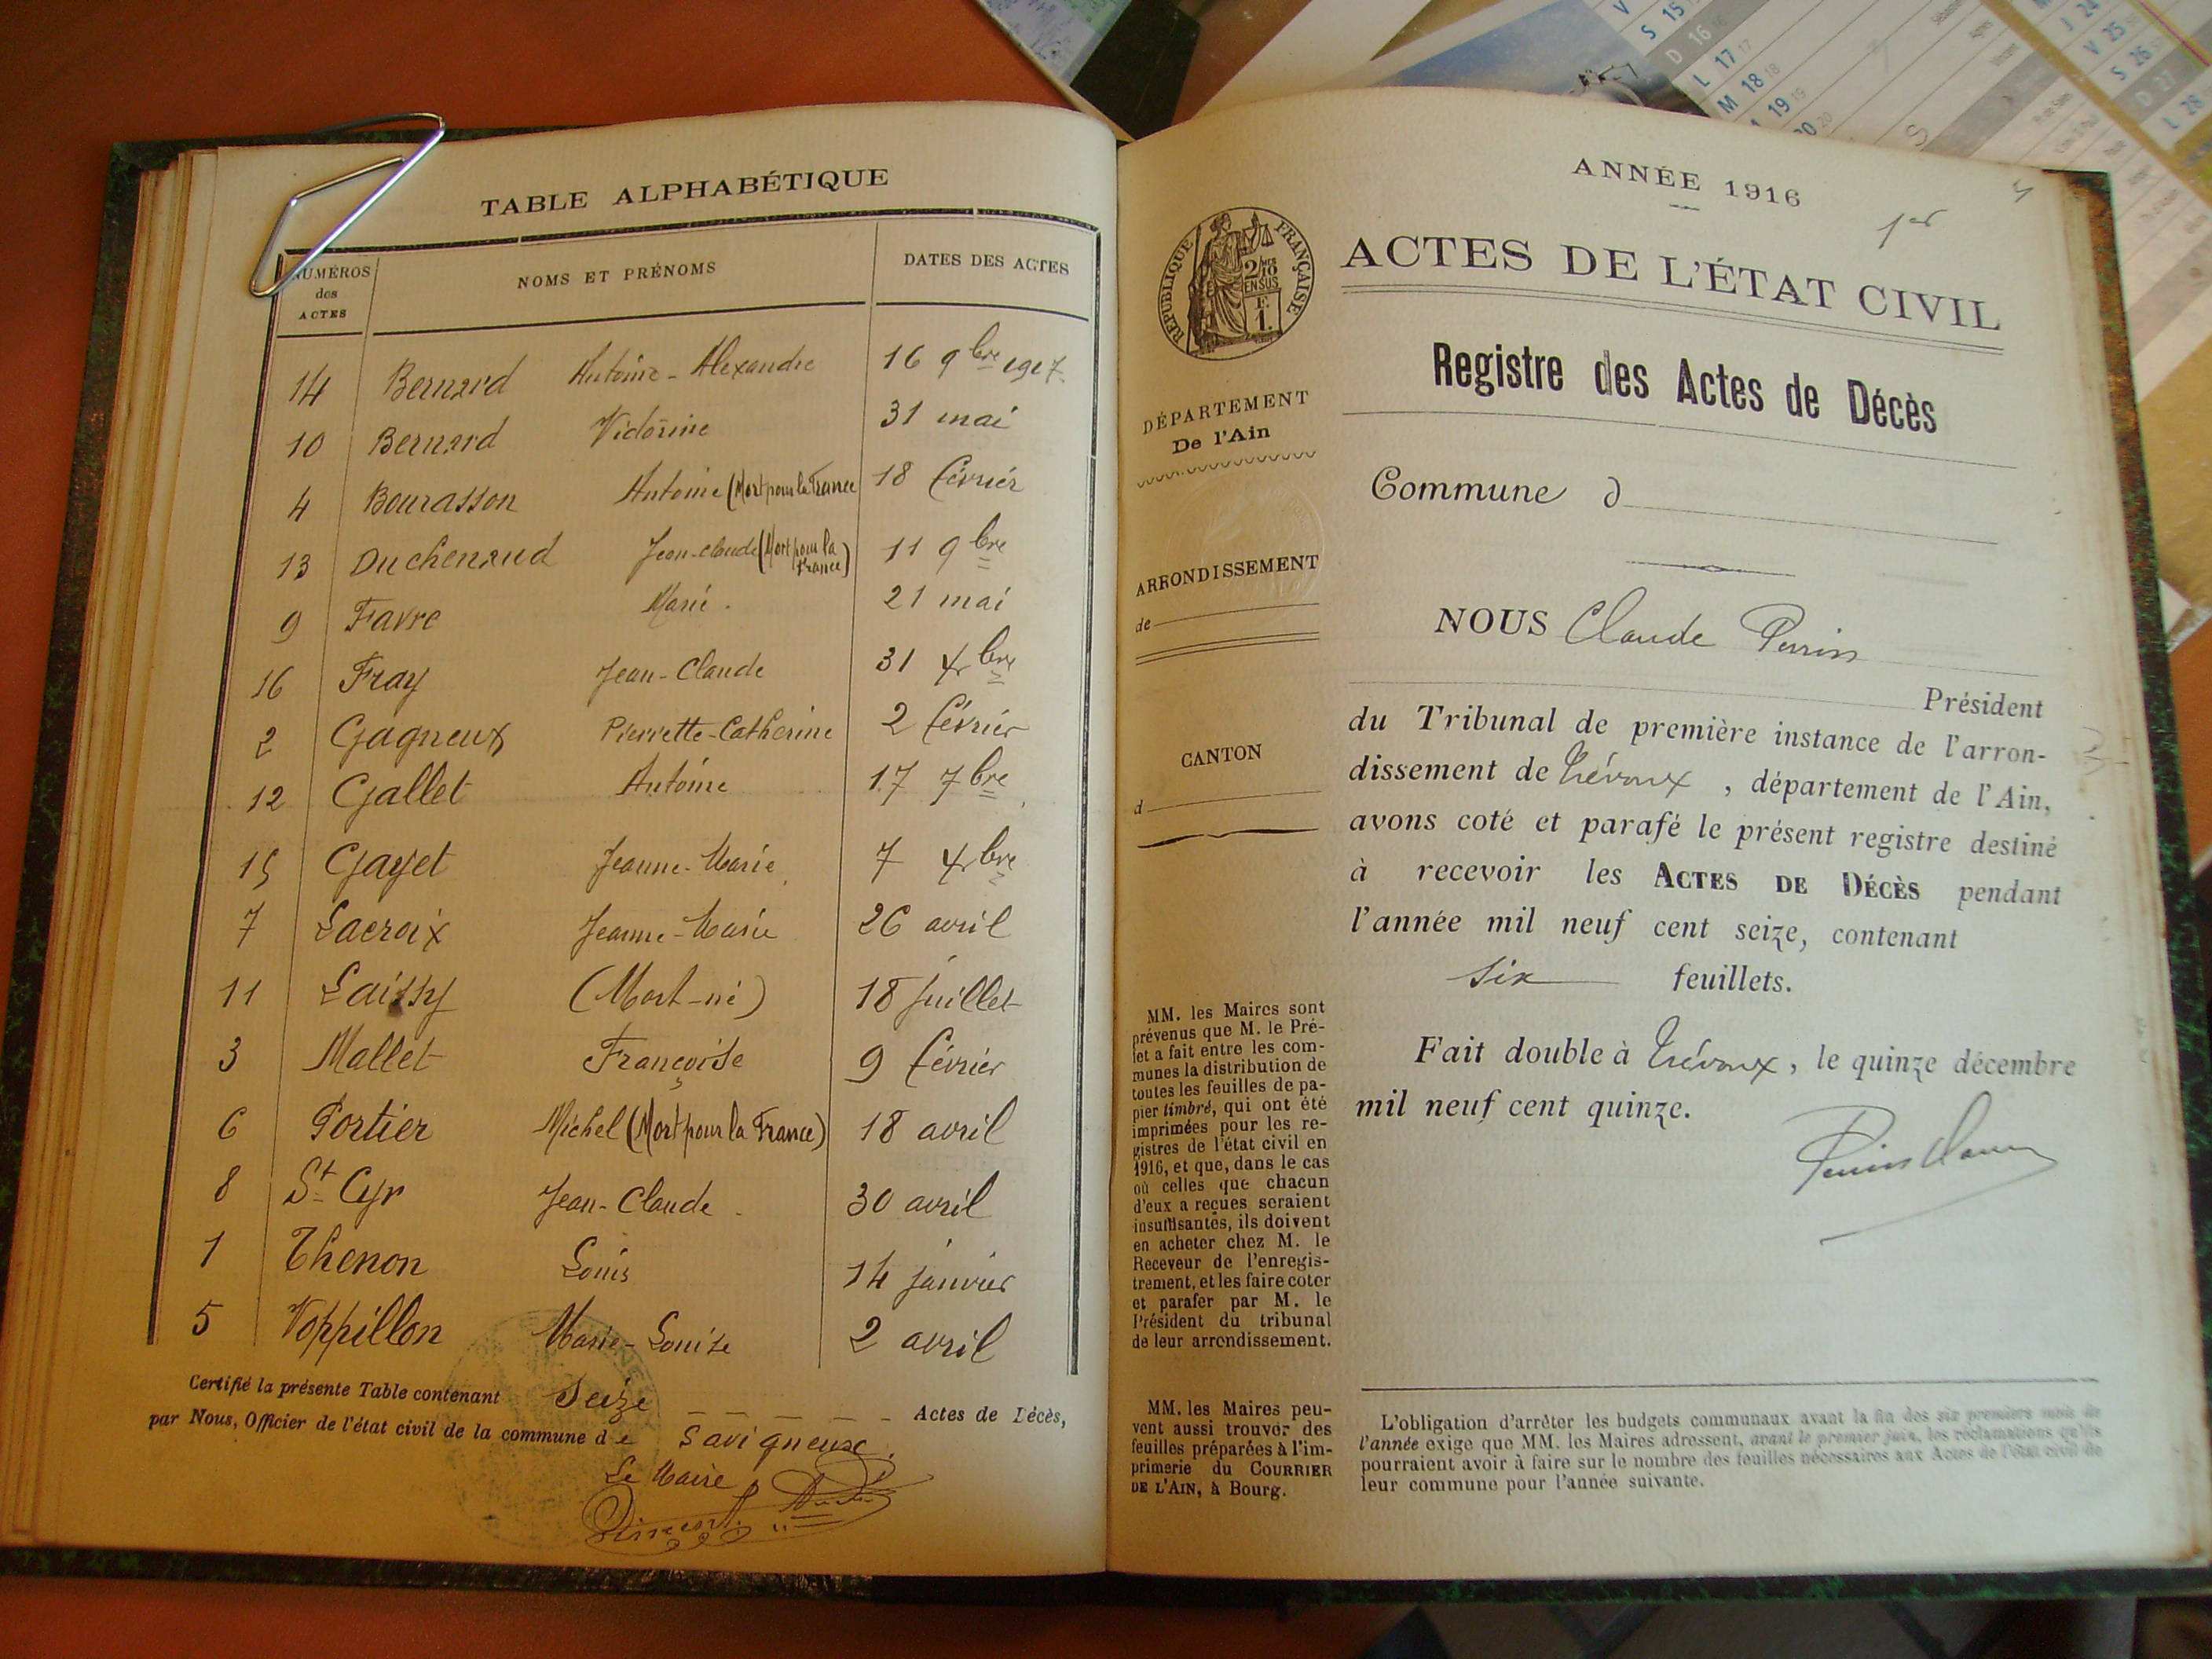 TABLE ALPHABÉTIQUE
NUMÉROS des ACTES
NOMS ET PRÉNOMS
DATES DES ACTES
14 Bernard Antoine-Alexandre 16 9bre
10 Bernard Victorine 31 mai
4 Bourasson Antoine (Mort pour la France 18 février
13 Duchenaud Jean-Claude (Mort pour la France) 11 9bre
9 Favre Marie. 21 mai
16 Fray Jean-Claude 31 Xbre
2 Gagneux Pierrette-Catherine 2 février
12 Gallet Antoine 17 7bre
15 Gayet Jeanne-Marie 7 Xbre
7 Lacroix Jeanne-Marie 26 avril
11 Laissy (Mort-né) 18 juillet
3 Mallet Françoise 9 février
6 Portier Michel (Mort pour la France) 18 avril
8 St Cyr Jean-Claude 30 avril
1 Thenon Louis 14 janvier
5 Voppillon Marie-Louise 2 avril
Certifié la présente Table contenant Seize Actes de Décès,
par Nous, Officier de l'état civil de la commune de Savigneux.
Le Maire
ANNÉE 1916
1er
RÉPUBLIQUE FRANÇAISE
ACTES DE L'ÉTAT CIVIL
Registre des Actes de Décès
DÉPARTEMENT
De l'Ain
Commune d
ARRONDISSEMENT
de
CANTON
d
NOUS Claude Perrin
Président
du Tribunal de première instance de l'arron-
dissement de Trévoux, département de l'Ain,
avons coté et parafé le présent registre destiné
à recevoir les ACTES DE DÉCÈS pendant
l'année mil neuf cent seize, contenant
six feuillets.
Fait double à Trévoux, le quinze décembre
mil neuf cent quinze.
MM. les Maires sont
prévenus que M. le Pré-
fet a fait entre les com-
munes la distribution de
toutes les feuilles de pa-
pier timbré, qui ont été
imprimées pour les re-
gistres de l'état civil en
1916, et que, dans le cas
où celles que chacun
d'eux a reçues seraient
insuffisantes, ils doivent
en acheter chez M. le
Receveur de l'enregis-
trement, et les faire coter
et parafer par M. le
Président du tribunal
de leur arrondissement.
MM. les Maires peu-
vent aussi trouver des
feuilles préparées à l'im-
primerie du COURRIER
DE L'AIN, à Bourg.
L'obligation d'arrêter les budgets communaux avant la fin des six premiers mois de
l'année exige que MM. les Maires adressent, avant le premier juin, les réclamations qu'ils
pourraient avoir à faire sur le nombre des feuilles nécessaires aux Actes de l'état civil de
leur commune pour l'année suivante.